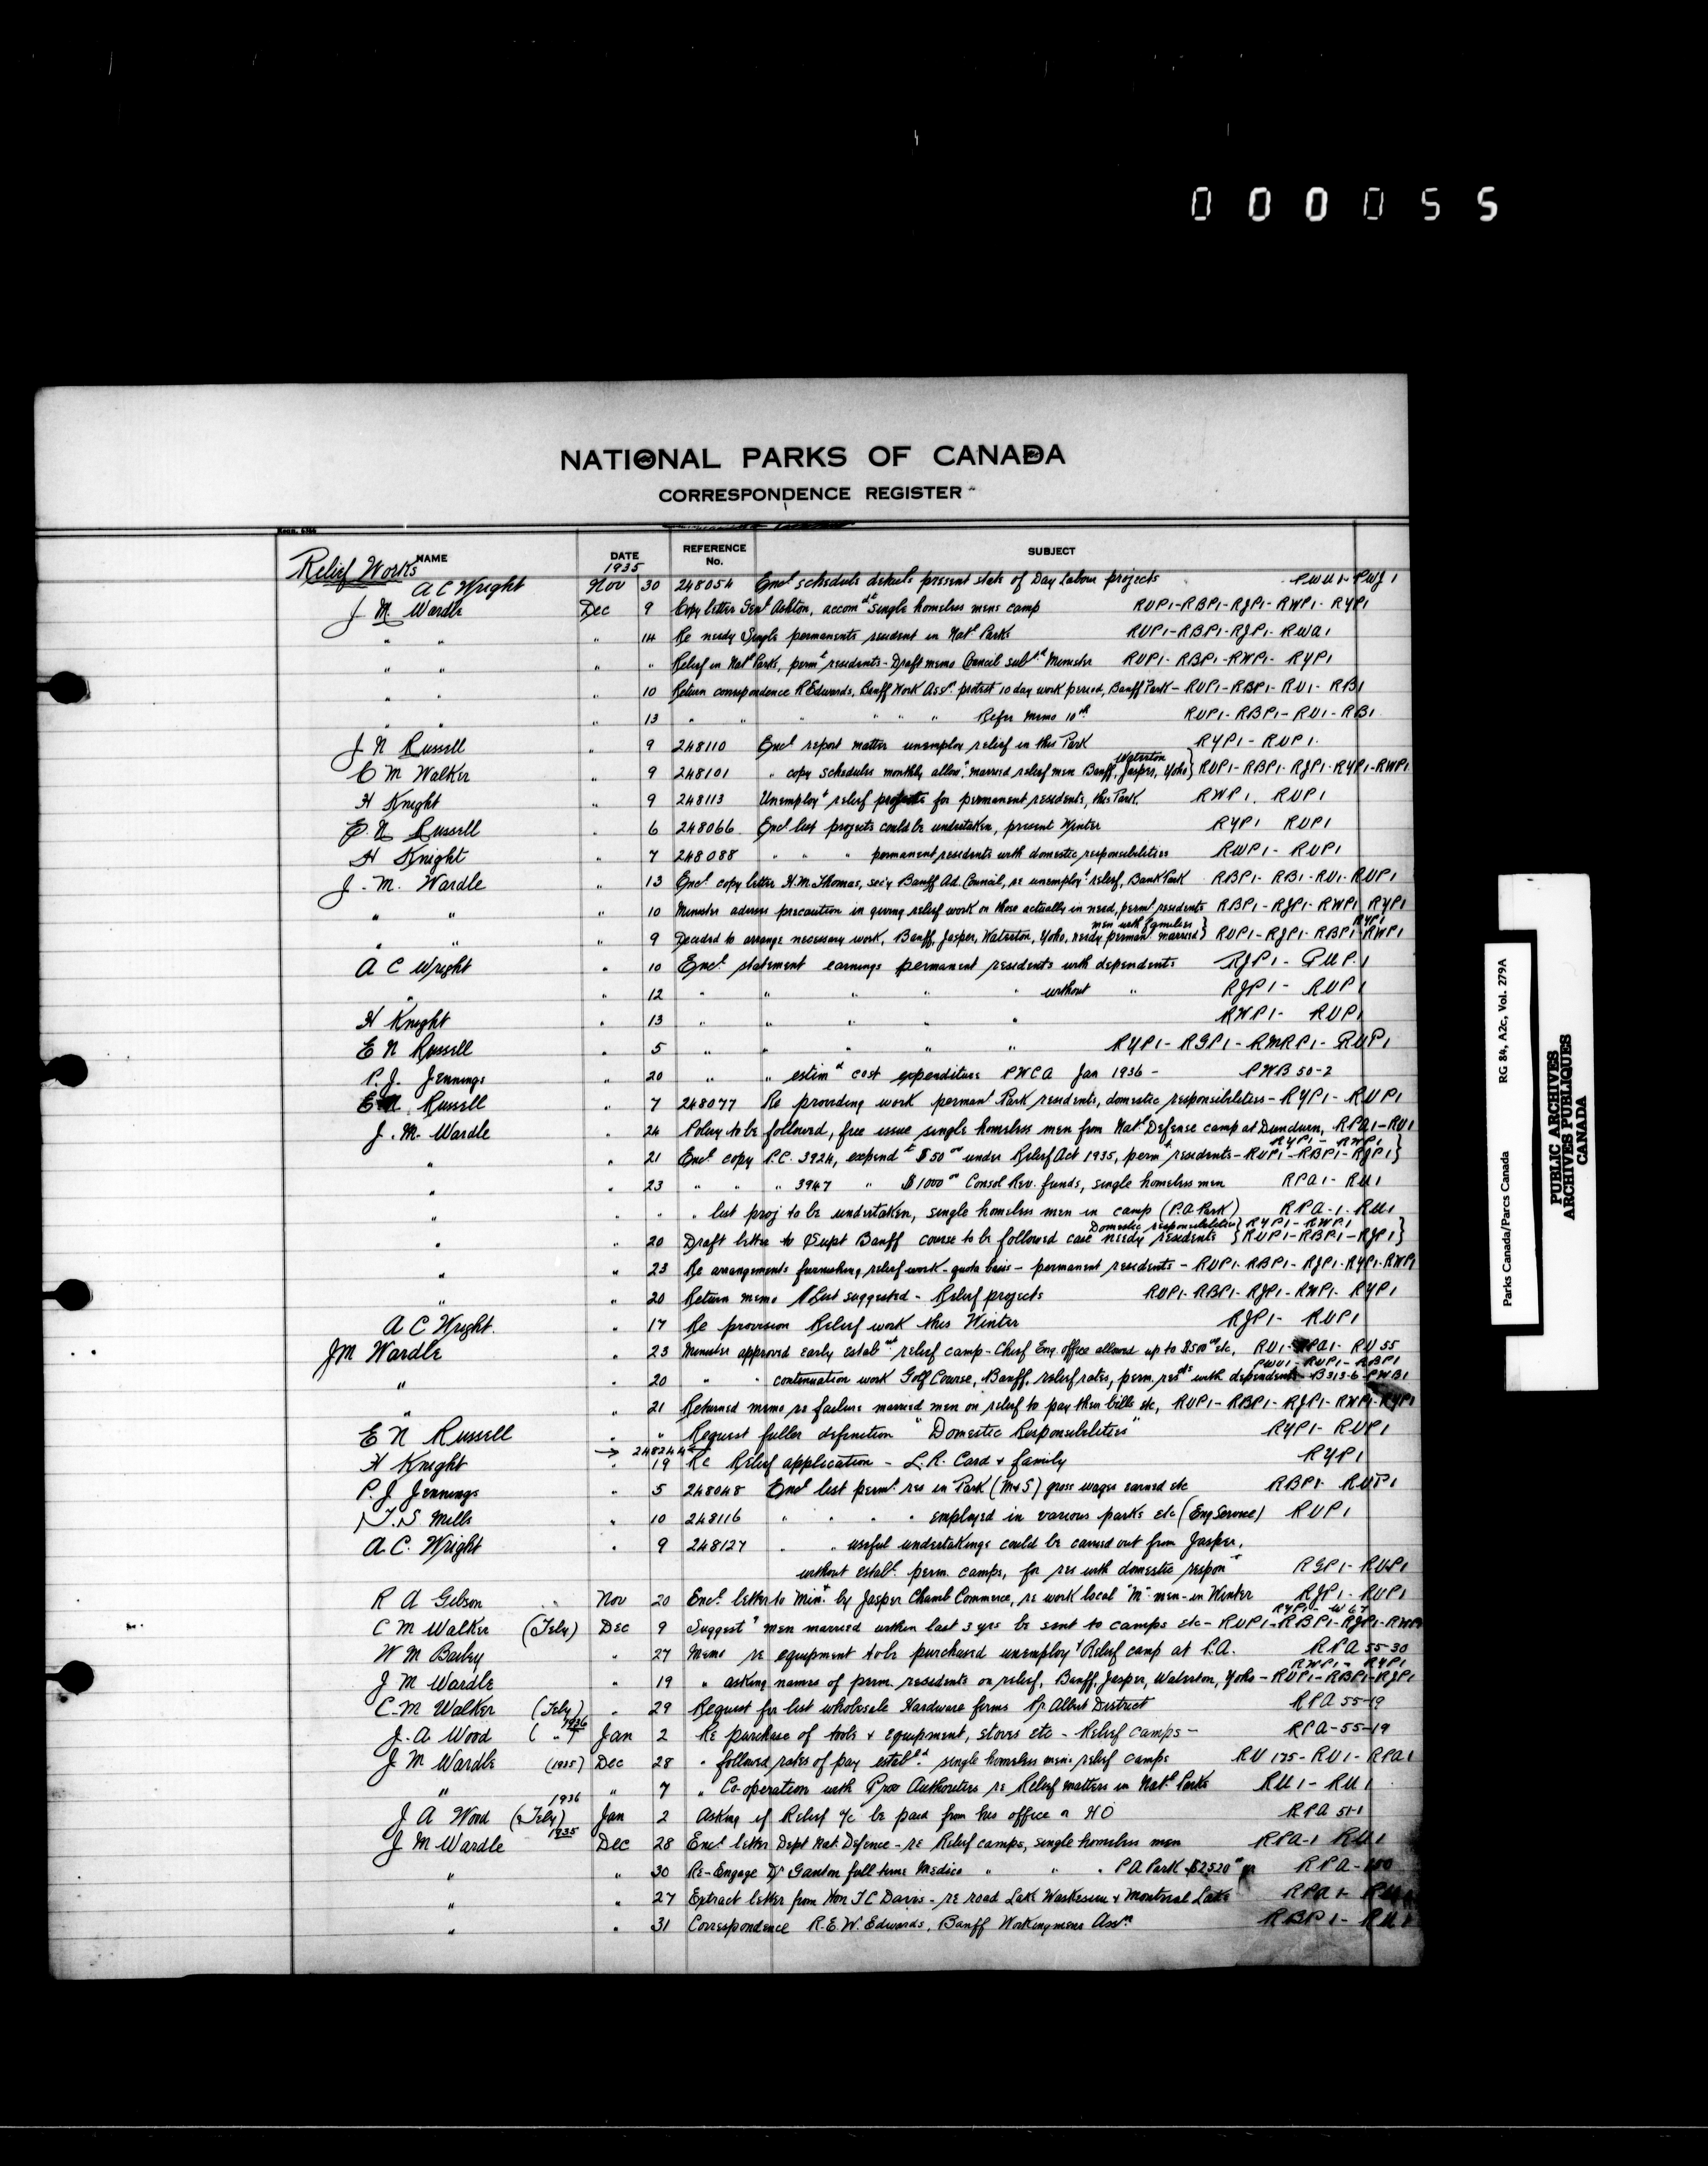 000055
NATIONAL PARKS OF CANADA
CORRESPONDENCE REGISTER
NAME DATE REFERENCE No. SUBJECT
Relief Works 1935
A C Wright Nov 30 248054 Encl schedule details present state of Day labour projects PWU1-PWJ1
J. M. Wardle Dec 9 Copy letter Genl Ashton, accom dt single homeless mens camp RUP1-RBP1-RJP1-RWP1-RYP1
" " " 14 Re needy Single permanents resident in Natl Parks RUP1-RBP1-RJP1-RWA1
" " " " Relief in Natl Parks, permt residents - Draft memo Council subtd Minister RUP1-RBP1-RWP1-RYP1
" " " 10 Return correspondence R Edwards, Banff Work Assn protest 10 day work period, Banff Park - RUP1-RBP1-RU1-RB1
" " " 13 " " " " " " Refer Memo 10th RUP1-RBP1-RU1-RB1
J N Russell " 9 248110 Encl report matter unemploy relief in this Park RYP1-RUP1
C M Walker " 9 248101 " copy schedules monthly allow, married relief men Banff, Waterton Jasper, Yoho} RUP1-RBP1-RJP1-RYP1-RWP1
H Knight " 9 248113 Unemployt relief projects for permanent residents, this Park. RWP1. RUP1
E. N. Russell " 6 248066 Encl list projects could be undertaken, present Winter RYP1 RUP1
H Knight " 7 248088 " " " permanent residents with domestic responsibilities RWP1-RUP1
J. M. Wardle " 13 Encl copy letter H.M. Thomas, sec'y Banff Ad. Council, re unemployt relief, Bank Park RBP1-RB1-RU1-RUP1
" " " 10 Minister advises precaution in giving relief work on those actually in need, permt residents RBP1-RJP1-RWP1 RYP1
" " " 9 Decided to arrange necessary work, Banff, Jasper, Waterton, Yoho, needy perman married men with families} RUP1-RJP1-RBP1-RWP1 RYP1
A C Wright " 10 Encl statement earnings permanent residents with dependents RJP1-RUP1
" " 12 " " " " " without " RJP1-RUP1
H Knight " 13 " " " " " RWP1-RUP1
E N Russell " 5 " " " " " RYP1-RGP1-RMRP1-RUP1
P. J. Jennings " 20 " " estimd cost expenditure PWCA Jan 1936 - PWB 50-2
E N Russell " 7 248077 Re providing work permant Park residents, domestic responsibilities - RYP1-RUP1
J. M. Wardle " 24 Policy to be followed, free issue single homeless men from Natl Defense camp at Dundurn, RPA1-RU1
" " 21 Encl copy P.C. 3924, expendt $50 00 under Relief Act 1935, permt residents - RUP1-RBP1-RJP1} RYP1-RWP1
" " 23 " " " 3947 " $1000 00 Consol Rev. funds, single homeless men RPA1-RU1
" " " " list proj to be undertaken, single homeless men in camp (P.A. Park) RPA-1-RU1
" " 20 Draft letter to Supt Banff course to be followed case needy residents Domestic responsibilities} {RYP1-RWP1 RUP1-RBP1-RJP1}
" " 23 Re arrangements furnishing relief work - quota basis - permanent residents - RUP1-RBP1-RJP1-RYP1-RWP1
" " 20 Return memo suggested - Relief projects RUP1-RBP1-RJP1-RWP1-RYP1
A C Wright. " 17 Re provision Relief work this Winter RJP1-RUP1
J M Wardle " 23 Minister approved early estabmt relief camp - Chief Eng. office allowed up to $500 00 etc, RU1-RPA1-RU55
" " 20 " " continuation work Golf Course, Banff, relief rates, perm. resdts with dependents - PWU1-RUP1-RBP1 B313-6-PWB1
" " 21 Returned memo re failure married men on relief to pay their bills etc, RUP1-RBP1-RJP1-RWP1-RYP1
E N Russell " " Request fuller definition "Domestic Responsibilities" RYP1-RUP1
H Knight " → 248244 19 Re Relief application - L.R. Card & family RYP1
P. J. Jennings " 5 248048 Encl list permt res in Park (M&S) gross wages earned etc RBP1-RUP1
T. S. Mills " 10 248116 " " " " employed in various parks etc (Eng Service) RUP1
A. C. Wright " 9 248127 " " useful undertakings could be carried out from Jasper,
without establ. perm. camps, for res with domestic respon RGP1-RUP1
R A Gibson Nov 20 Encl letter to Min. by Jasper Chamb Commerce, re work local "M" men - in Winter RJP1-RUP1
C M Walker (Tely) Dec 9 Suggestn men married within last 3 yrs be sent to camps etc - RUP1-RBP1-RJP1-RWP1 RYP1-W67
W M Baxby " 27 Memo re equipment to be purchased unemployt Relief camp at P.A. RPA 55-30
J M Wardle " 19 " asking names of perm. residents on relief, Banff, Jasper, Waterton, Yoho - RUP1-RBP1-RJP1 RWP1-RYP1
C. M Walker (Tely) " 29 Request for list wholesale Hardware firms Pr Albert District RPA 55-19
J. A. Wood ( " ) 1936 Jan 2 Re purchase of tools & equipment, stoves etc - Relief camps - RPA-55-19
J M Wardle (1935) Dec 28 " followed rates of pay establd single homeless mens relief camps RU 175-RU1-RPA1
" " 7 " Co-operation with Prov Authorities re Relief matters in Natl Parks RU1-RU1
J A Wood (Tely) 1936 Jan 2 Asking if Relief a/c be paid from his office or HO RPA 51-1
J M Wardle 1935 Dec 28 Encl letter Dept Nat. Defence - re Relief camps, single homeless men RPA-1 RU1
" " 30 Re-Engage Dr Ganton full time Medico " " " PA Park $2520 00 RPA-
" " 27 Extract letter from Hon T C Davis - re road Lake Waskesiu & Montreal Lake RPA1-RU1
" " 31 Correspondence R.E.W. Edwards, Banff Workingmens Assn RBP1-RU1
Parks Canada/Parcs Canada RG 84, A2c, Vol. 279A
PUBLIC ARCHIVES
ARCHIVES PUBLIQUES
CANADA